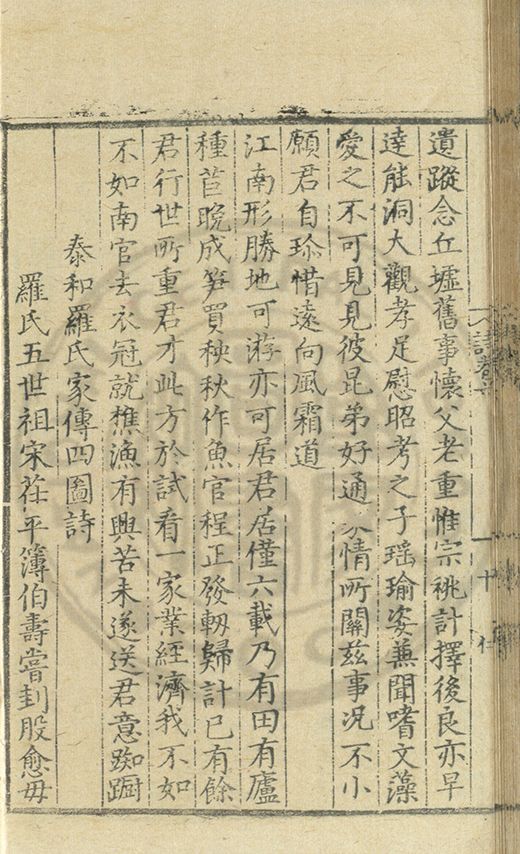 遺蹤念丘墟舊事懷父老重惟宗祧計擇後良亦早
達能洞大觀孝足慰昭考之子瑶瑜姿兼聞嗜文藻
愛之不可見見彼昆弟好通家情所關茲事况不小
願君自珎惜遠向風霜道
江南形勝地可游亦可居君居僅六載乃有田有廬
種苣晩成笋買秧秋作魚官程正發軔歸計已有餘
君行世所重君才此方於試看一家業經濟我不如
不如南官去衣冠就樵漁有興苦未遂送君意踟蹰
泰和羅氏家傳四圖詩
羅氏五世祖宋茌平簿伯壽嘗刲股愈毋